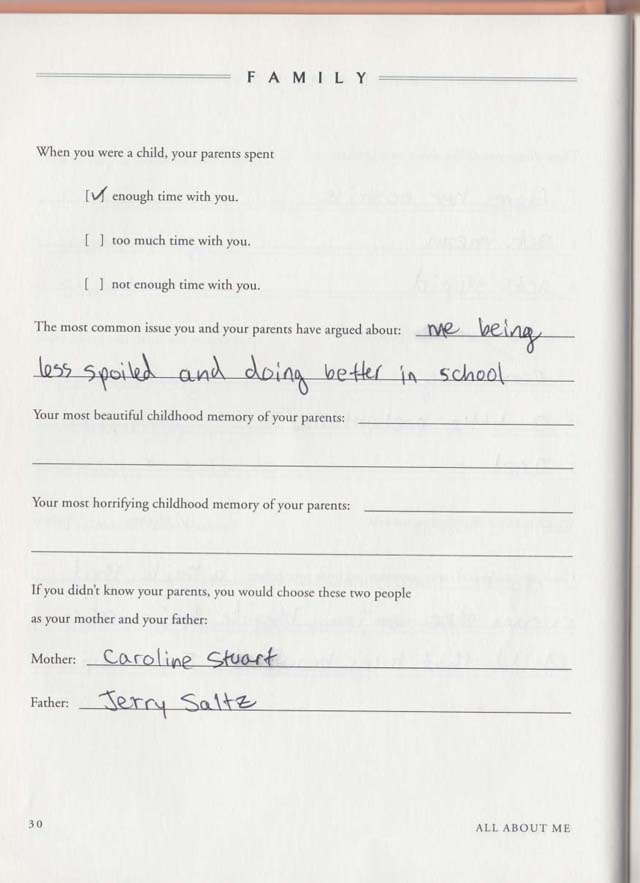 FAMILY
When you were a child, your parents spent
[✓] enough time with you.
[ ] too much time with you.
[ ] not enough time with you.
The most common issue you and your parents have argued about: me being
less spoiled and doing better in school
Your most beautiful childhood memory of your parents:
Your most horrifying childhood memory of your parents:
If you didn't know your parents, you would choose these two people
as your mother and your father:
Mother: Caroline Stuart
Father: Jerry Saltz
30
ALL ABOUT ME